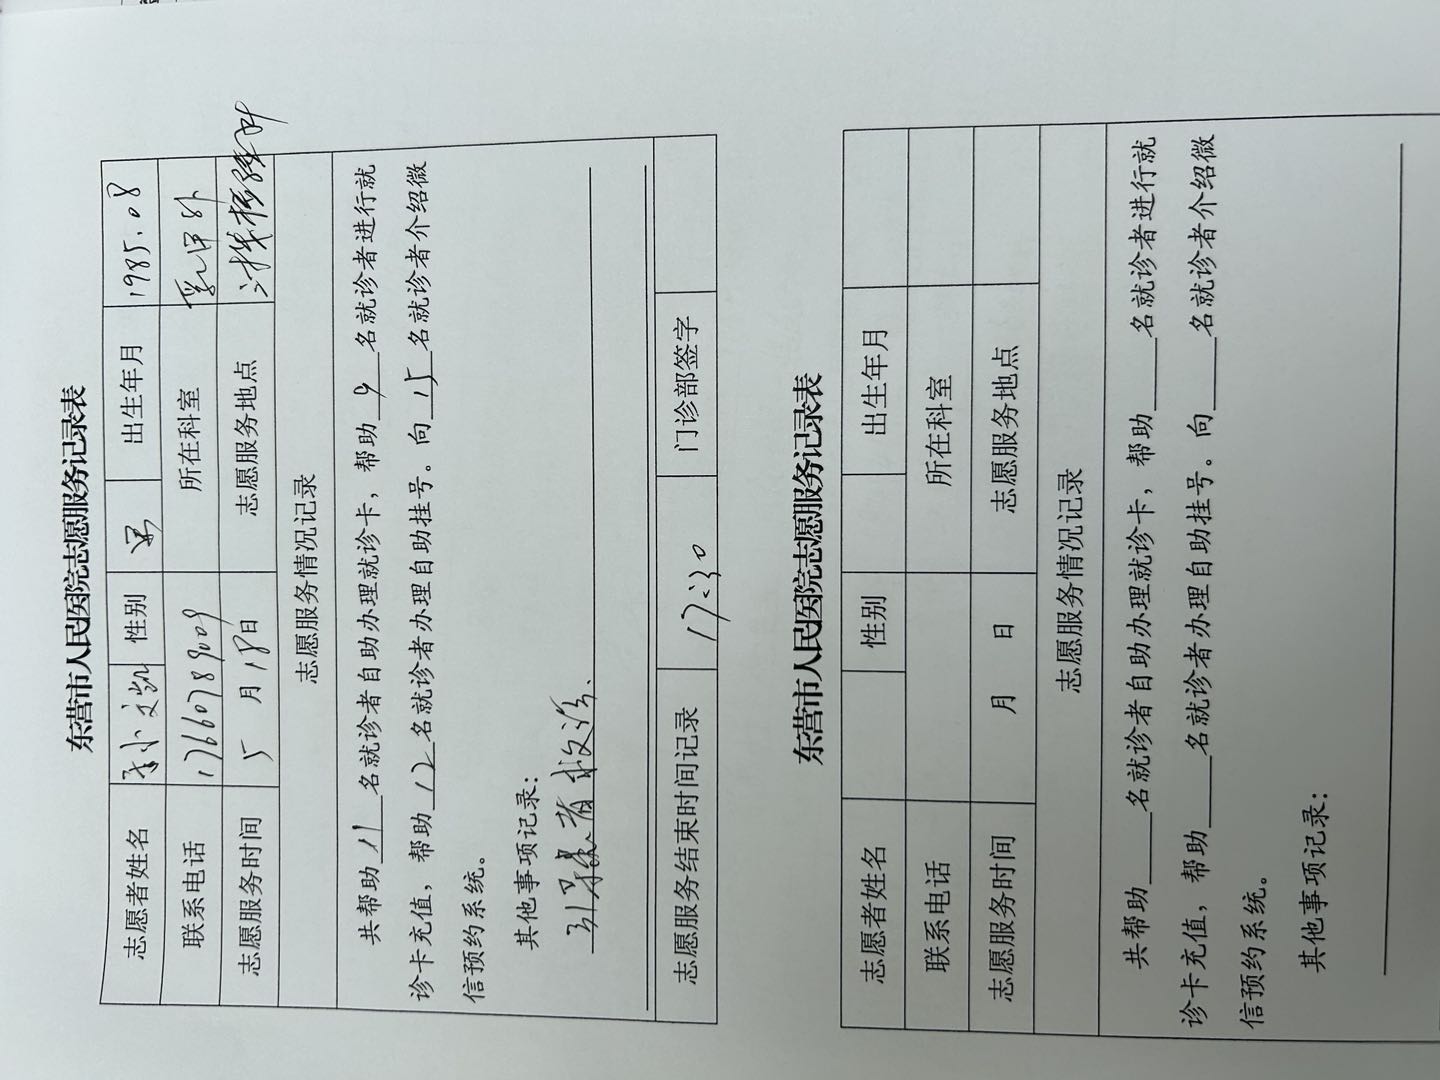 东营市人民医院志愿服务记录表
志愿者姓名 孙文凯 性别 男 出生年月 1985.08
联系电话 17660789009 所在科室 乳甲外
志愿服务时间 5 月 18 日 志愿服务地点
志愿服务情况记录
共帮助 11 名就诊者自助办理就诊卡，帮助 9 名就诊者进行就
诊卡充值，帮助 12 名就诊者办理自助挂号。向 15 名就诊者介绍微
信预约系统。
其他事项记录：
引导患者就诊.
志愿服务结束时间记录 17:30 门诊部签字
东营市人民医院志愿服务记录表
志愿者姓名 性别 出生年月
联系电话 所在科室
志愿服务时间 月 日 志愿服务地点
志愿服务情况记录
共帮助 名就诊者自助办理就诊卡，帮助 名就诊者进行就
诊卡充值，帮助 名就诊者办理自助挂号。向 名就诊者介绍微
信预约系统。
其他事项记录：